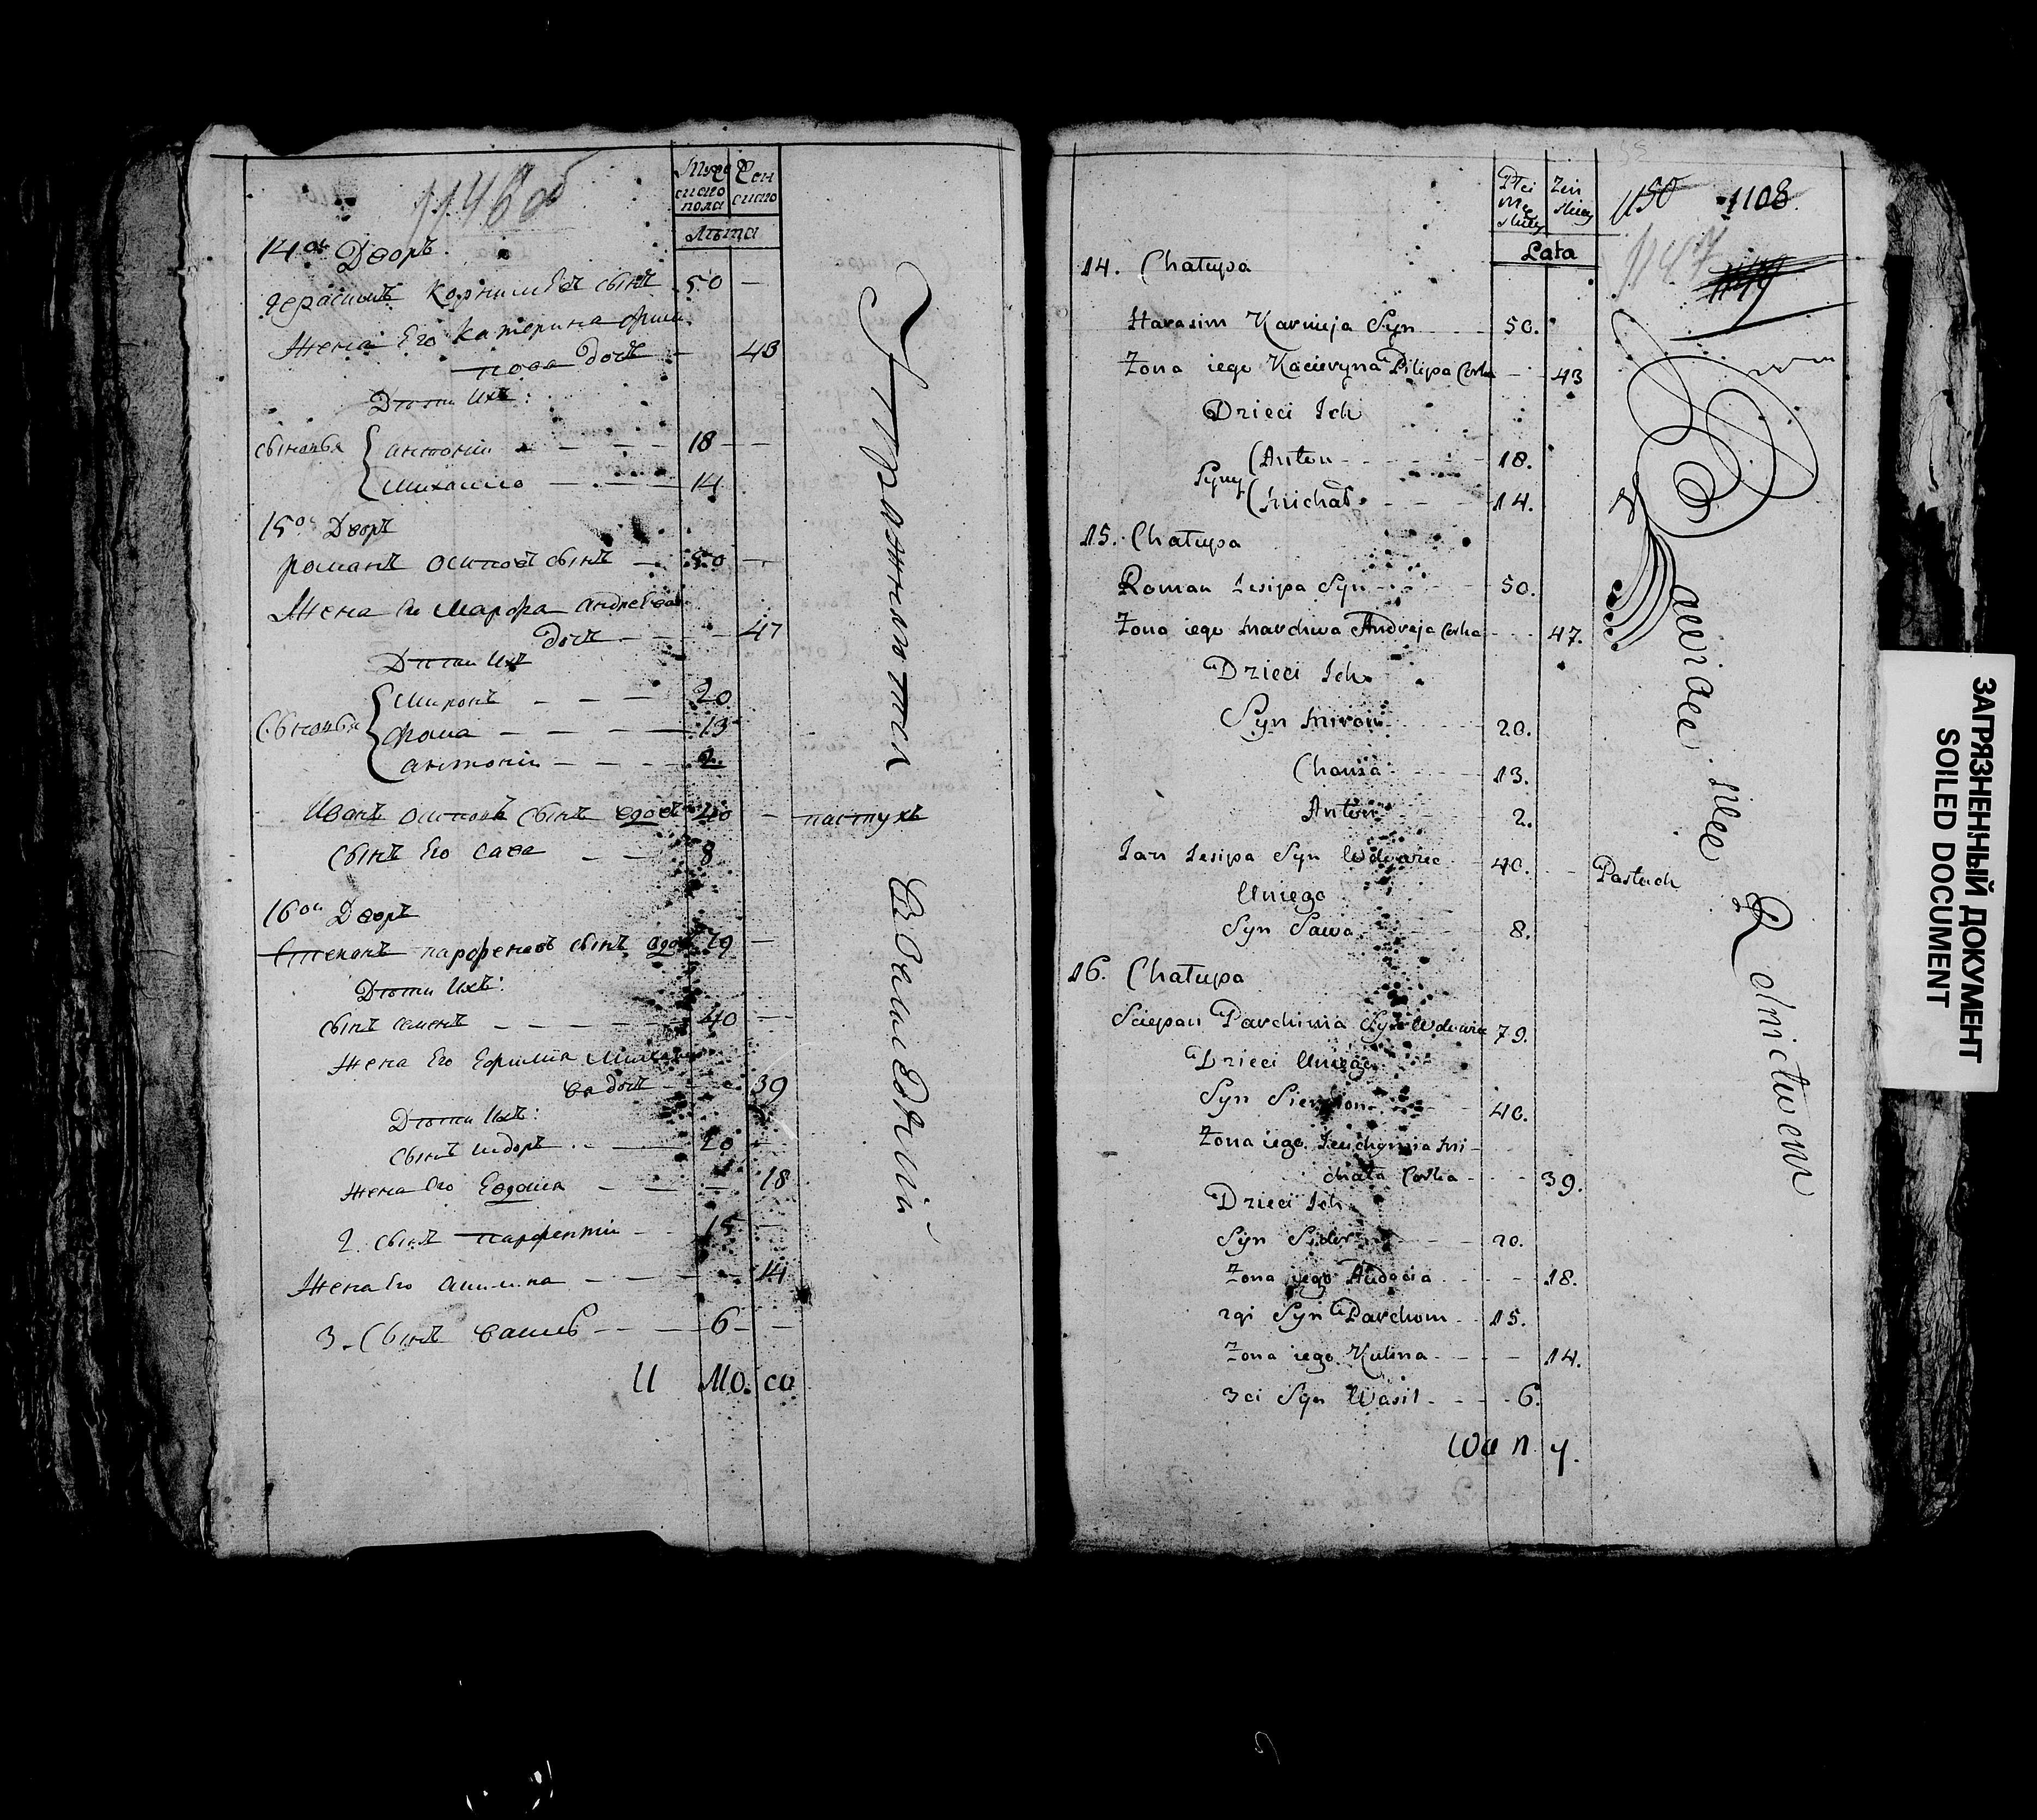 1146 об
Мужескаго пола
Женскаго
Лѣта
14ой Дворъ.
Герасимъ Корнилѣевъ сынъ 50 —
Жена Его Катерина Филипова дочь — 43
Дѣти Ихъ:
сыновья { антоній — — — — 18 — —
михайло — — — — 14
15ой Дворъ
романъ осиповъ сынъ — 50 —
Жена Ег Марфа андреева
дочь — — — 47
Дѣти Ихъ
Сыновья { миронъ — — — 20
фома — — — — 13
антоній — — — 2.
Иванъ осиповъ сынъ вдовъ 40 — пастухъ
сынъ Его Сава — — 8
16ой Дворъ
Степанъ парфеновъ сынъ вдовъ 79 —
Дѣти Ихъ:
сынъ семенъ — — — — 40 —
Жена Его Ефимия Михайлова дочь — 39
Дѣти Ихъ:
сынъ сидоръ — — 20 —
жена Его Евдокия — — — 18
2. сынъ парфентій — 15 —
Жена Его акилина — — — 14
3. Сынъ василь — — — 6 — —
И мо. со
Упражняются
въ Земледѣліи
Płci Męskiey
Żeńskiey
Lata
1150 1108.
1147
1149
14. Chałupa
Harasim Karnieja Syn — — 50.
Zona iego Kacieryna Pilipa Corka — 43
Dzieci Ich
Syny (Anton — — — — 18.
(Michał — — — 14.
15. Chałupa
Roman Iesipa Syn — — — 50.
Zona iego Marchwa Andreja Corka — — 47.
Dzieci Ich
Syn Miron — — — 20.
Choma — — — 13.
Anton — — — 2.
Ian Iesipa Syn Wdowiec — 40. — Pastuch
Uniego
Syn Sawa — — — 8.
16. Chałupa
Sciepan Parchimia Syn Wdowiec 79.
Dzieci Uniego
Syn Siemion — — — 40.
Zona iego Ieuchymia Mi-
chała Corka — — — 39.
Dzieci Ich
Syn Sidor — — — 20.
Zona iego Audocia — — — 18.
2gi Syn Parchom — — 15.
Zona iego Kulina — — — 14.
3ci Syn Wasil — — — 6.
Bawiące się Rolnictwem
ЗАГРЯЗНЕННЫЙ ДОКУМЕНТ
SOILED DOCUMENT